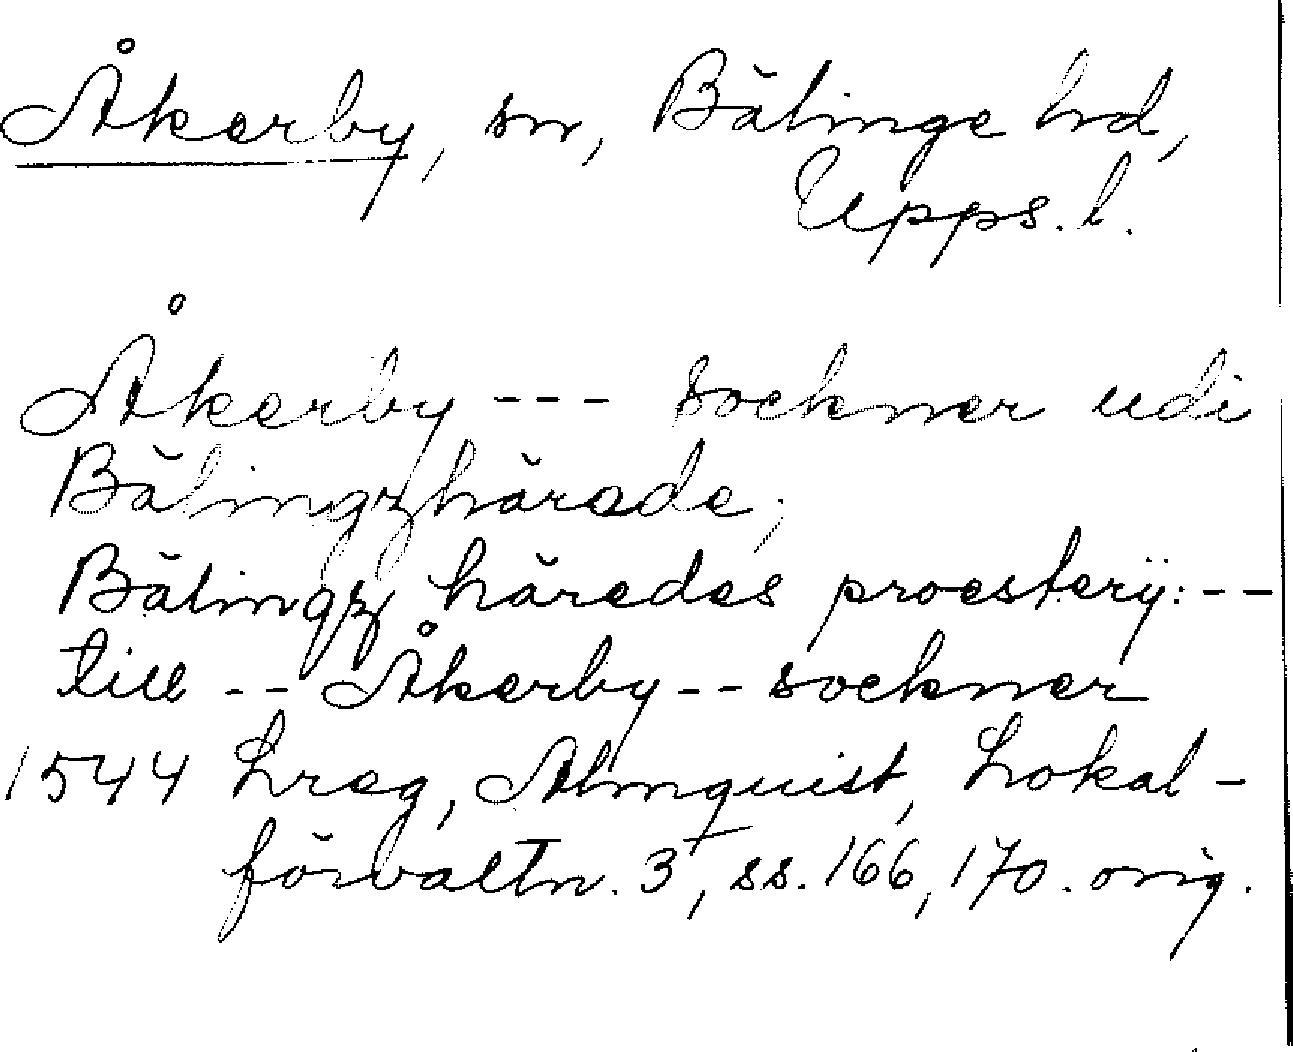 Åkerby, sn, Bälinge hd,
Upps. l.
Åkerby --- sockner udi
Bälingzhärade;
Bälingz häredes proesterÿ: --
till -- Åkerby -- sockner
1544 Lreg, Almquist, Lokal-
förvaltn. 3, ss. 166, 170. orig.